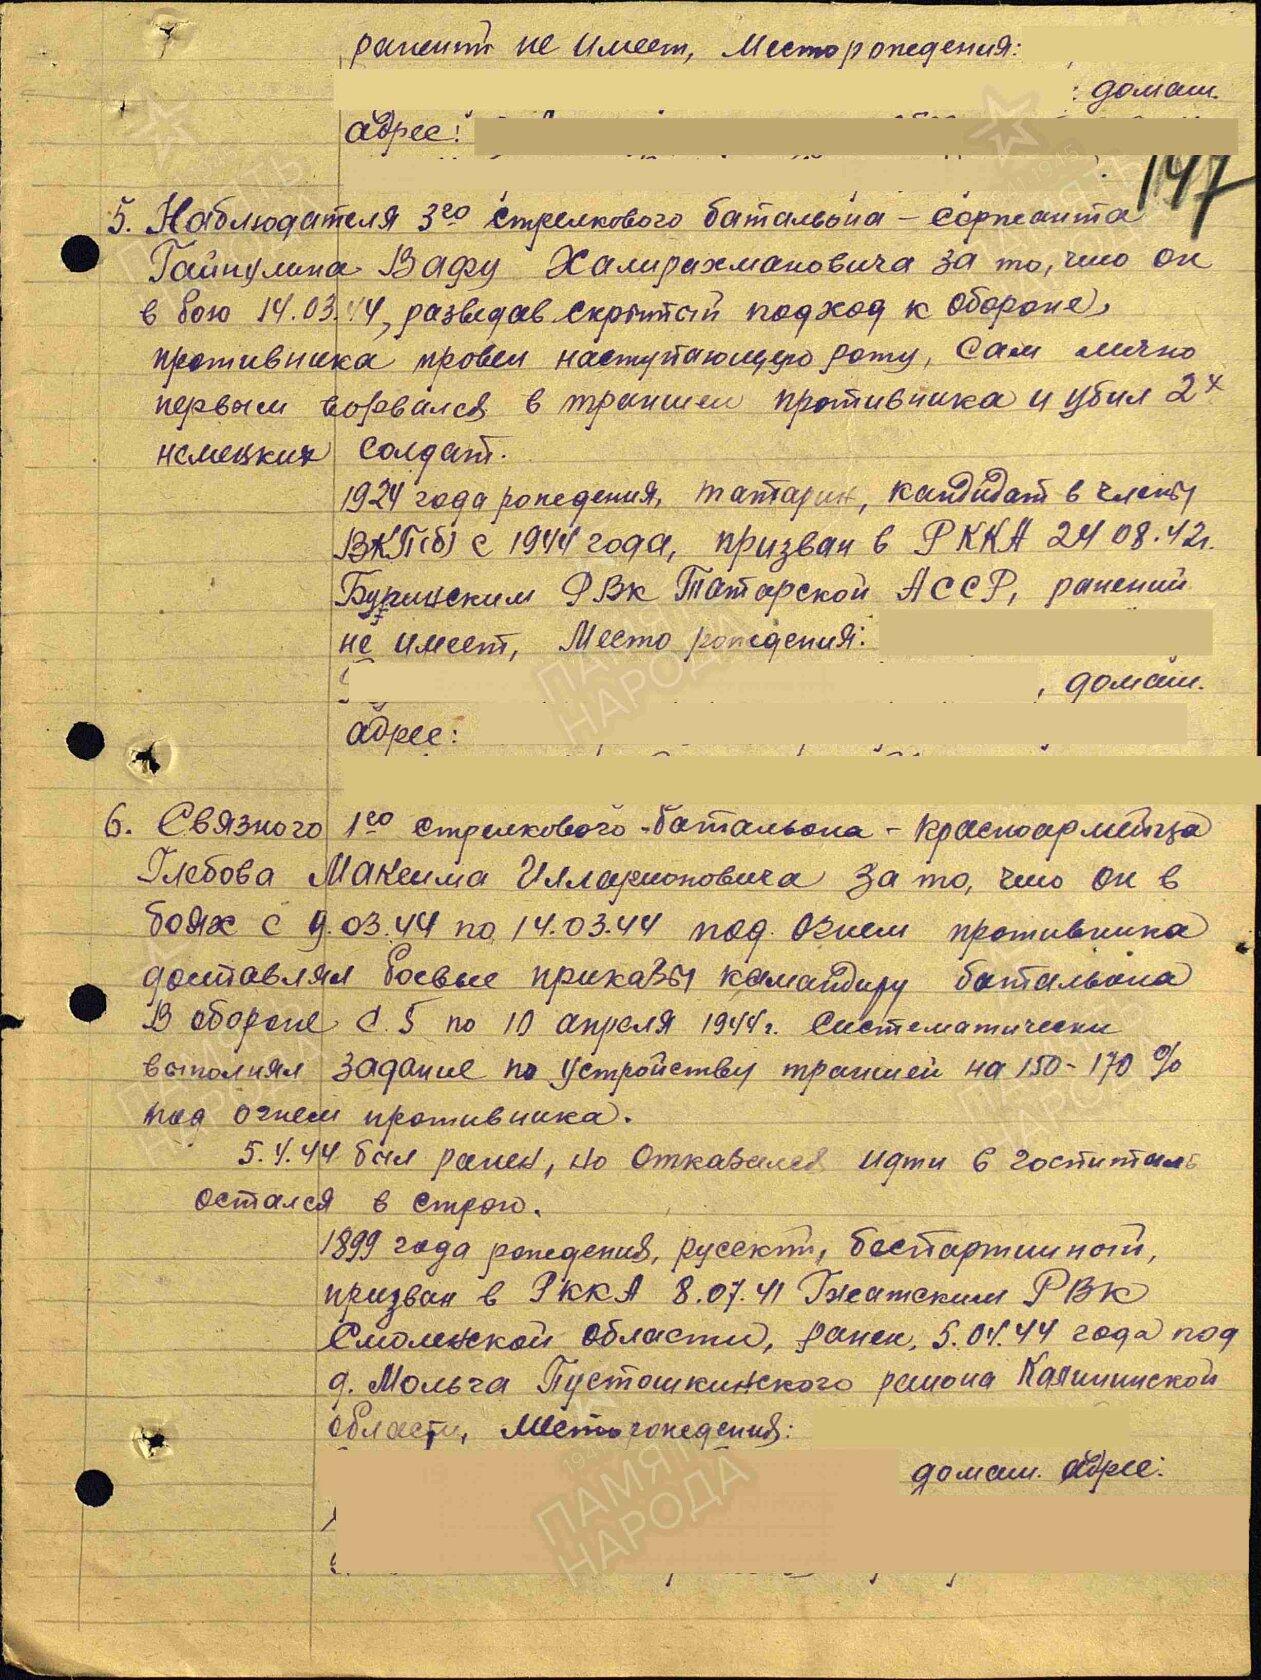 ранений не имеет, Место рождения:
домаш.
адрес:
147
5. Наблюдателя 3го стрелкового батальона – сержанта
Гайнулина Вафу Халирахмановича за то, что он
в бою 14.03.44, разведав скрытый подход к обороне
противника провел наступающую роту, сам лично
первым ворвался в траншеи противника и убил 2х
немецких солдат.
1924 года рождения, татарин, кандидат в члены
ВКП(б) с 1944 года, призван в РККА 24 08.42г.
РВК Татарской АССР, ранений
не имеет, Место рождения:
, домаш.
адрес:
6. Связного 1го стрелкового батальона – красноармейца
Глебова Максима Илларионовича за то, что он в
боях с 9.03.44 по 14.03.44 под огнем противника
доставлял боевые приказы командиру батальона
В обороне с 5 по 10 апреля 1944г. систематически
выполнял задание по устройству траншей на 150-170 %
под огнем противника.
5.4.44 был ранен, но отказался идти в госпиталь
остался в строю.
1899 года рождения, русский, беспартийный,
призван в РККА 8.07.41 Гжатским РВК
Смоленской области, ранен 5.04.44 года под
д. Мольга Пустошкинского района Калининской
области, Место рождения:
домаш. адрес:
ПАМЯТЬ
НАРОДА